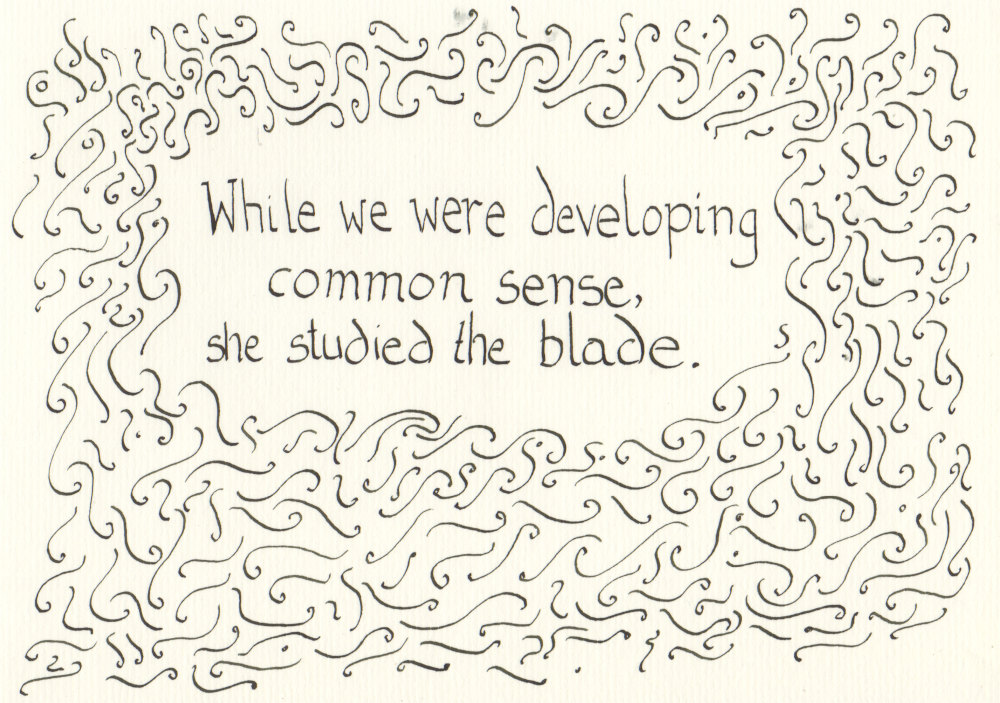 While we were developing
common sense,
she studied the blade.